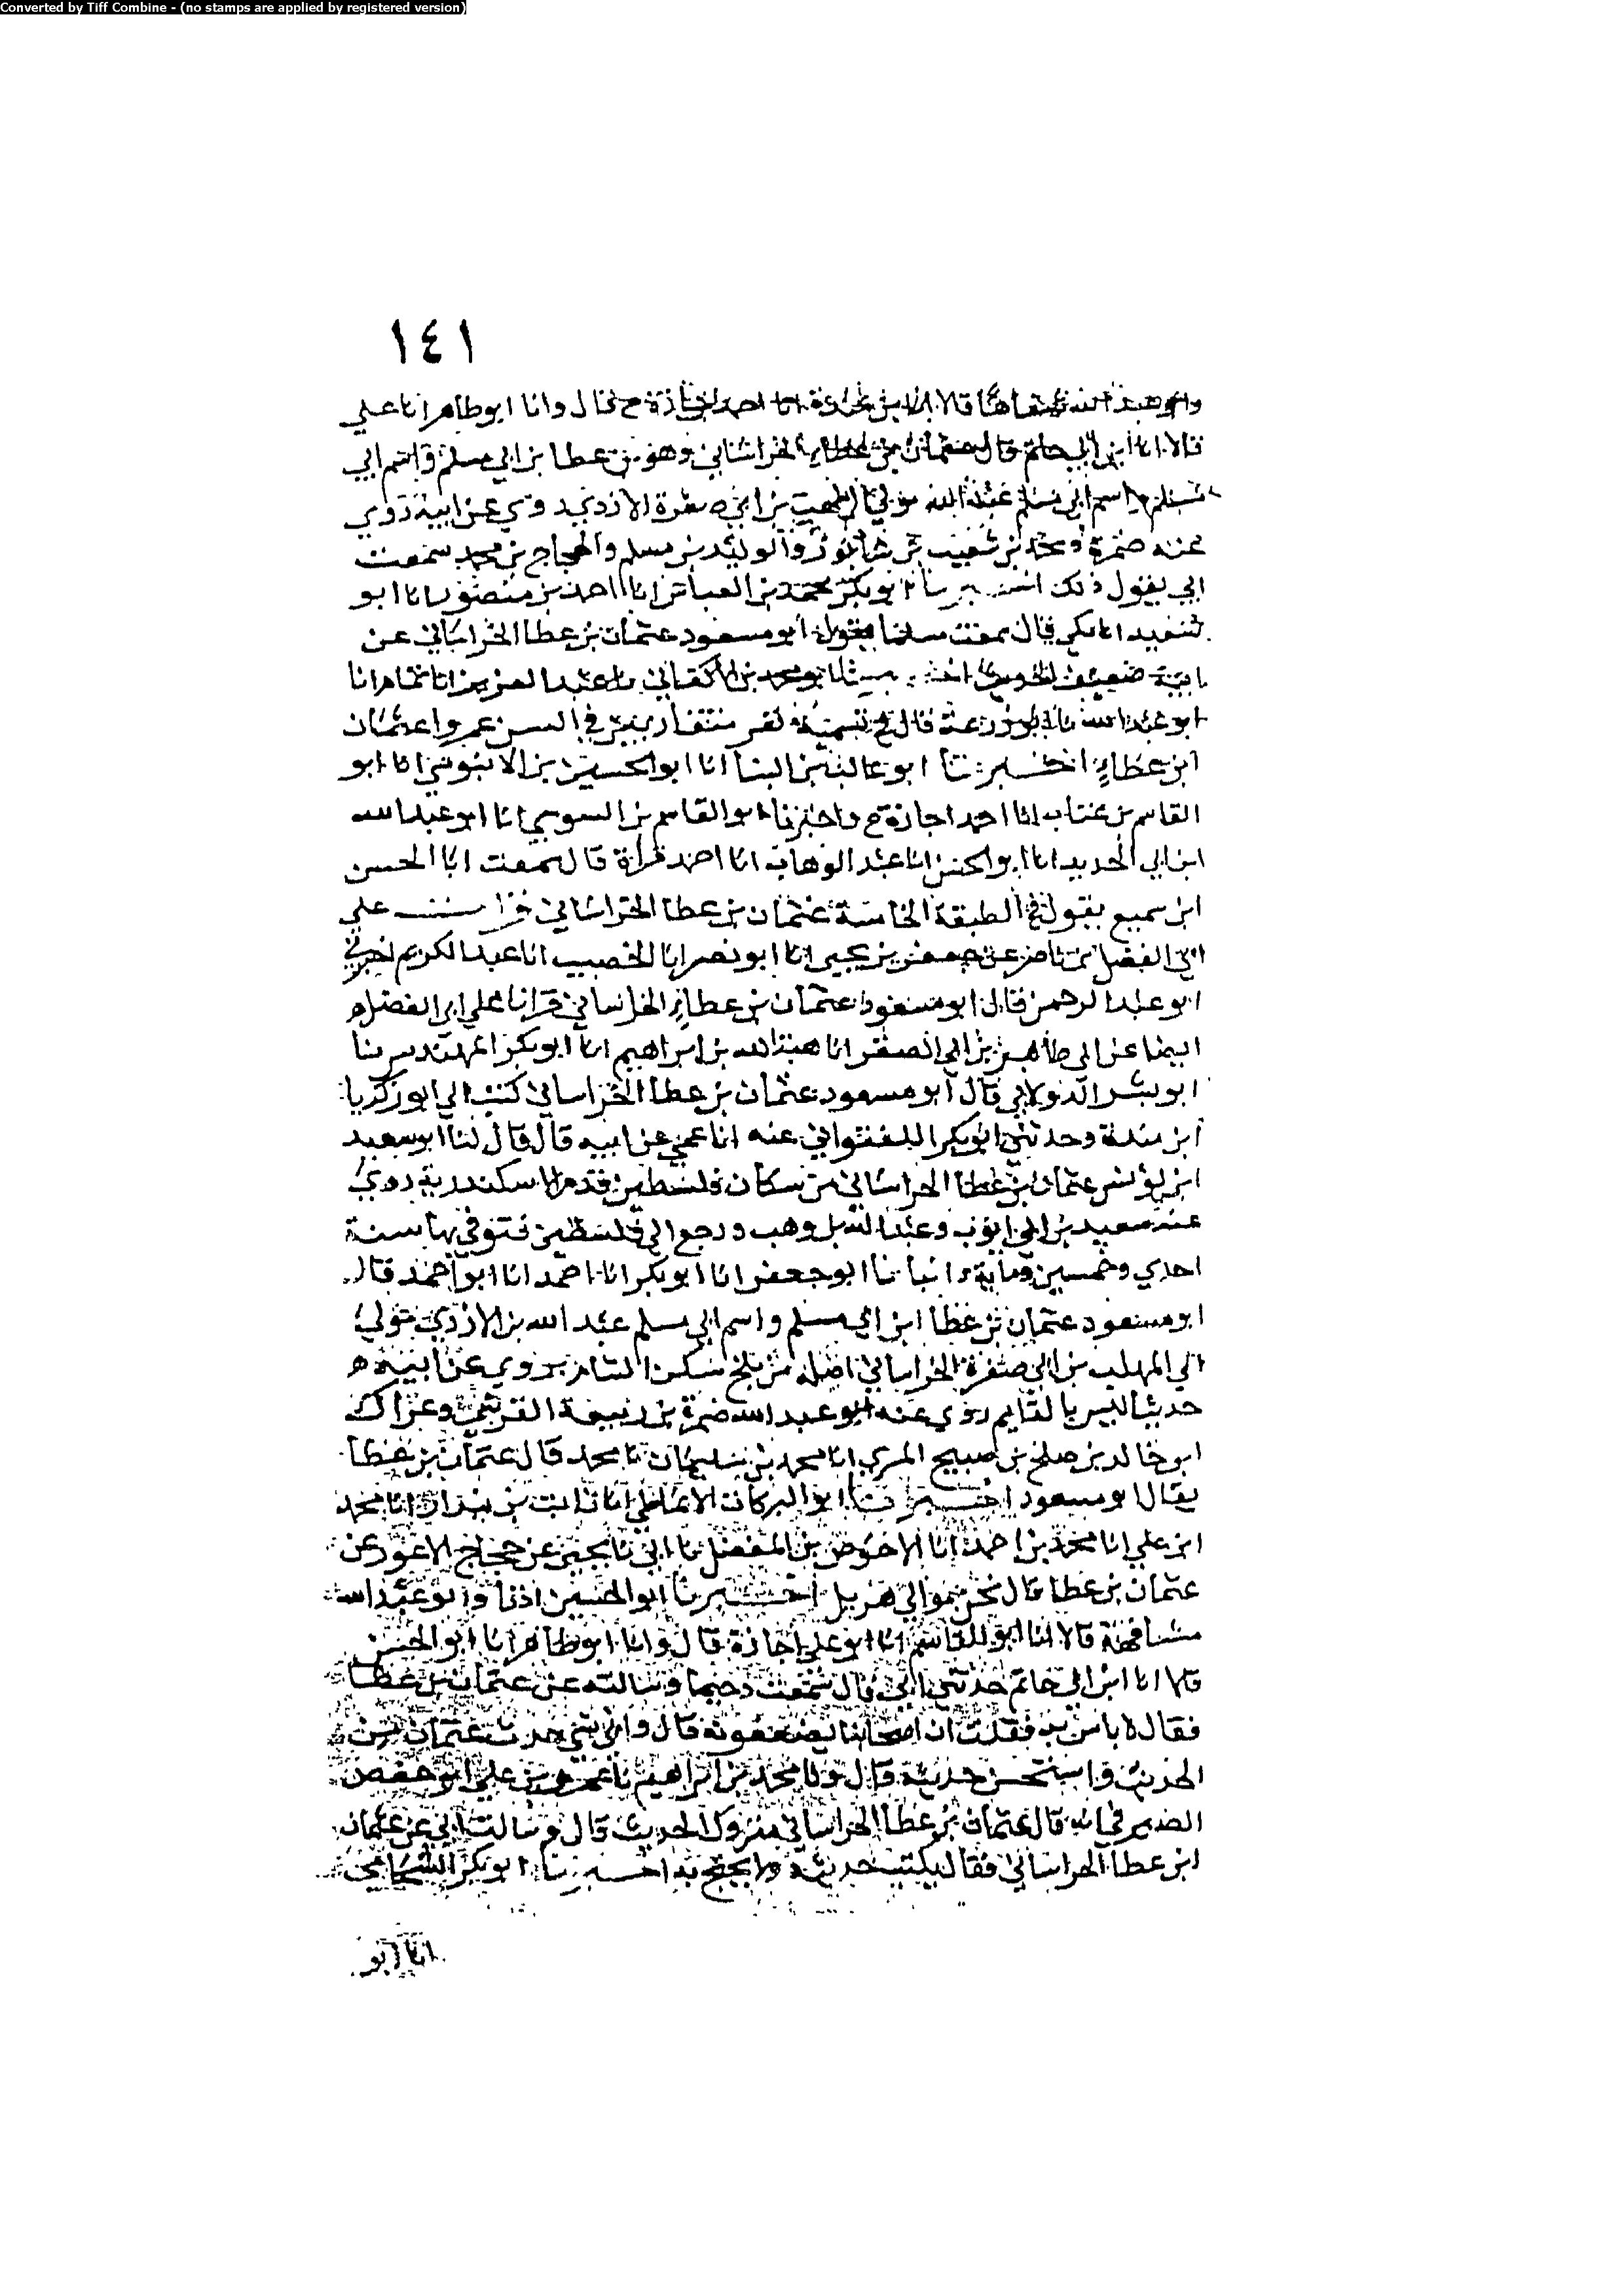 Converted by Tiff Combine - (no stamps are applied by registered version)
١٤١
وابو عبد الله شفاها قالا انا ابن منده انا احمد اجازة ح قال وانا ابو طاهر انا علي
قالا انا ابن ابي حاتم قال عثمان بن عطاء الخراساني وهو بن عطا بن ابي مسلم واسم ابي
مسلم عبد الله مولى المهلب بن ابي صفرة الازدي روي عن ابيه روي
عنه ضمرة ومحمد بن شعيب بن شابور والوليد بن مسلم والحجاج بن محمد سمعت
ابي يقول ذلك اخبرنا ابو بكر محمد بن العباس انا احمد بن منصور انا ابو
سعيد انا مكي قال سمعت مسلما يقول ابو مسعود عثمان بن عطا الخراساني عن
ابيه ضعيف الحديث اخبرنا ابو محمد بن الاكفاني نا عبد العزيز انا تمام انا
ابو عبد الله نا ابو زرعة قال في تسمية نفر متقاربين في السن عمر واعثمان
ابن عطاء اخبرنا ابو غالب بن البنا انا ابو الحسين بن الابنوسي انا ابو
القاسم بن عتاب انا احمد اجازة ح واخبرنا ابو القاسم بن السوسي انا ابو عبد الله
ابن ابي الحديد انا ابو الحسن انا عبد الوهاب انا احمد قراة قال سمعت ابا الحسن
ابن سميع يقول في الطبقة الخامسة عثمان بن عطا الخراساني قرات علي
ابي الفضل بن ناصر عن جعفر بن يحيى انا ابو نصر انا الخصيب انا عبد الكريم اخبرني
ابو عبد الرحمن قال ابو مسعود عثمان بن عطاء الخراساني قرانا علي ابي الفضل
ايضا عن ابي طاهر بن ابي الصقر انا هبة الله بن ابراهيم انا ابو بكر المهندس نا
ابو بشر الدولابي قال ابو مسعود عثمان بن عطا الخراساني كتب الي ابو زكريا
ابن مندة وحدثني ابو بكر اللفتواني عنه انا عمي عن ابيه قال قال لنا ابو سعيد
ابن يونس عثمان بن عطا الخراساني من سكان فلسطين قدم الاسكندرية روي
عنه سعيد بن ابي ايوب وعبد الله بن وهب ورجع الي فلسطين فتوفي بها سنة
احدي وخمسين وماية انبانا ابو جعفر انا ابو بكر انا احمد انا ابو احمد قال
ابو مسعود عثمان بن عطا ابن ابي مسلم واسم ابي مسلم عبد الله بن الازدي مولي
ابي المهلب بن ابي صفرة الخراساني اصله من بلخ سكن الشام يروي عن ابيه
حديثا ليس بالقايم روي عنه ابو عبد الله ضمرة بن ربيعة القرشي وعراك
ابو خالد بن صلح بن صبيح المري انا محمد بن سليمان نا محمد قال عثمان بن عطا
يقال ابو مسعود اخبرنا ابو البركات الانماطي انا ثابت بن بندار انا محمد
ابن علي انا محمد بن احمد انا الاحوص بن المفضل نا ابي نا يحيى عن حجاج الاعور عن
عثمان بن عطا قال نحن موالي هزيل اخبرنا ابو الحسين اذنا وابو عبد الله
مشافهة قالا انا ابو القاسم انا ابو علي اجازة قال وانا ابو طاهر انا ابو الحسن
قالا انا ابن ابي حاتم حدثني ابي قال سمعت دحيما وسالته عن عثمان بن عطا
فقال لا باس به فقلت ان اصحابنا يضعفونه قال واي شي حدث عثمان من
الحديث واستحسن حديثه قال ونا محمد بن ابراهيم نا عمرو بن علي ابو حفص
الصيرفي انه قال عثمان بن عطا الخراساني متروك الحديث قال وسالت ابي عن عثمان
ابن عطا الخراساني فقال يكتب حديثه ولا يحتج به اخبرنا ابو بكر الشحامي
انا ابو